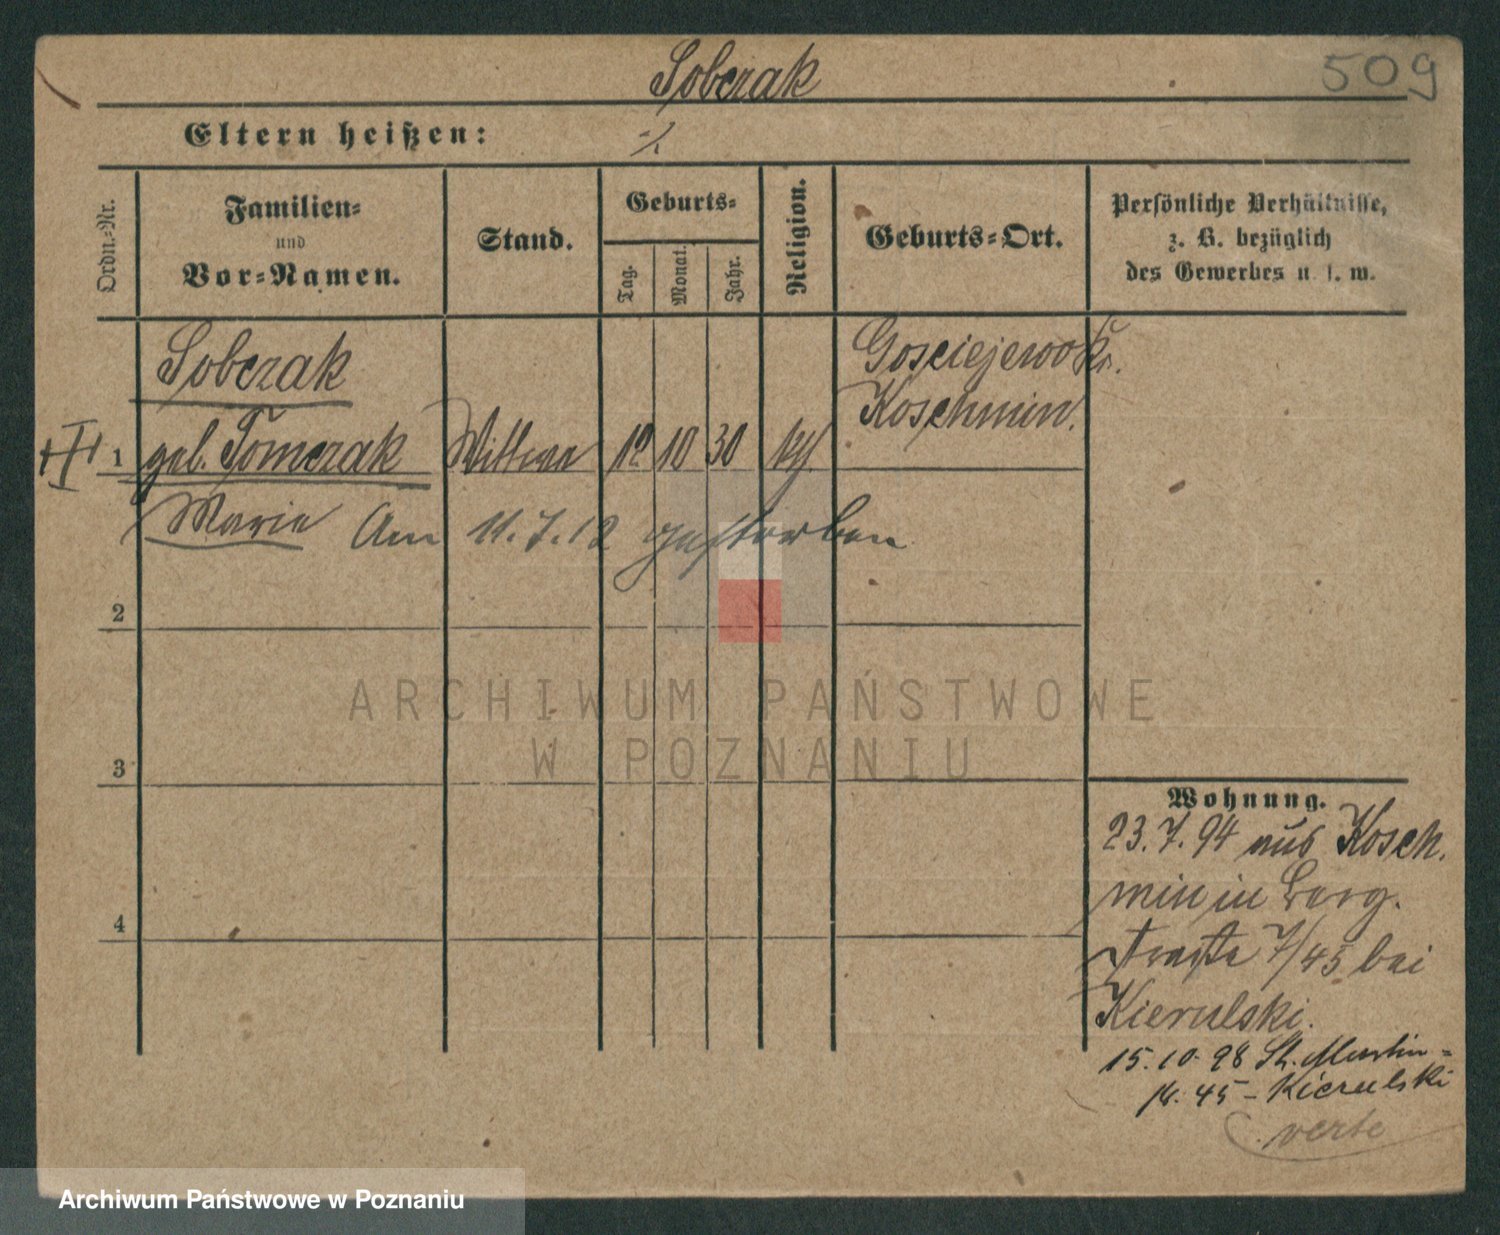 Sobczak
509
Eltern heißen: -/.
Ordn.-Nr.
Familien-
und
Vor-Namen.
Stand.
Geburts-
Tag.
Monat.
Jahr.
Religion.
Geburts-Ort.
Persönliche Verhältnisse,
z. B. bezüglich
des Gewerbes u. s. w.
Sobczak
Gosciejewo Kr.
Koschmin.
1 geb. Tomczak Wittwe 12 10 30 kth.
Marie Am 11.7.12 gestorben
2
3
4
Wohnung.
23.7.94 aus Kosch.
min in Berg.
straße 7/45 bei
Kierulski.
15.10.98 St. Martin-
str. 45 - Kierulski
verte
ARCHIWUM PAŃSTWOWE
W POZNANIU
Archiwum Państwowe w Poznaniu